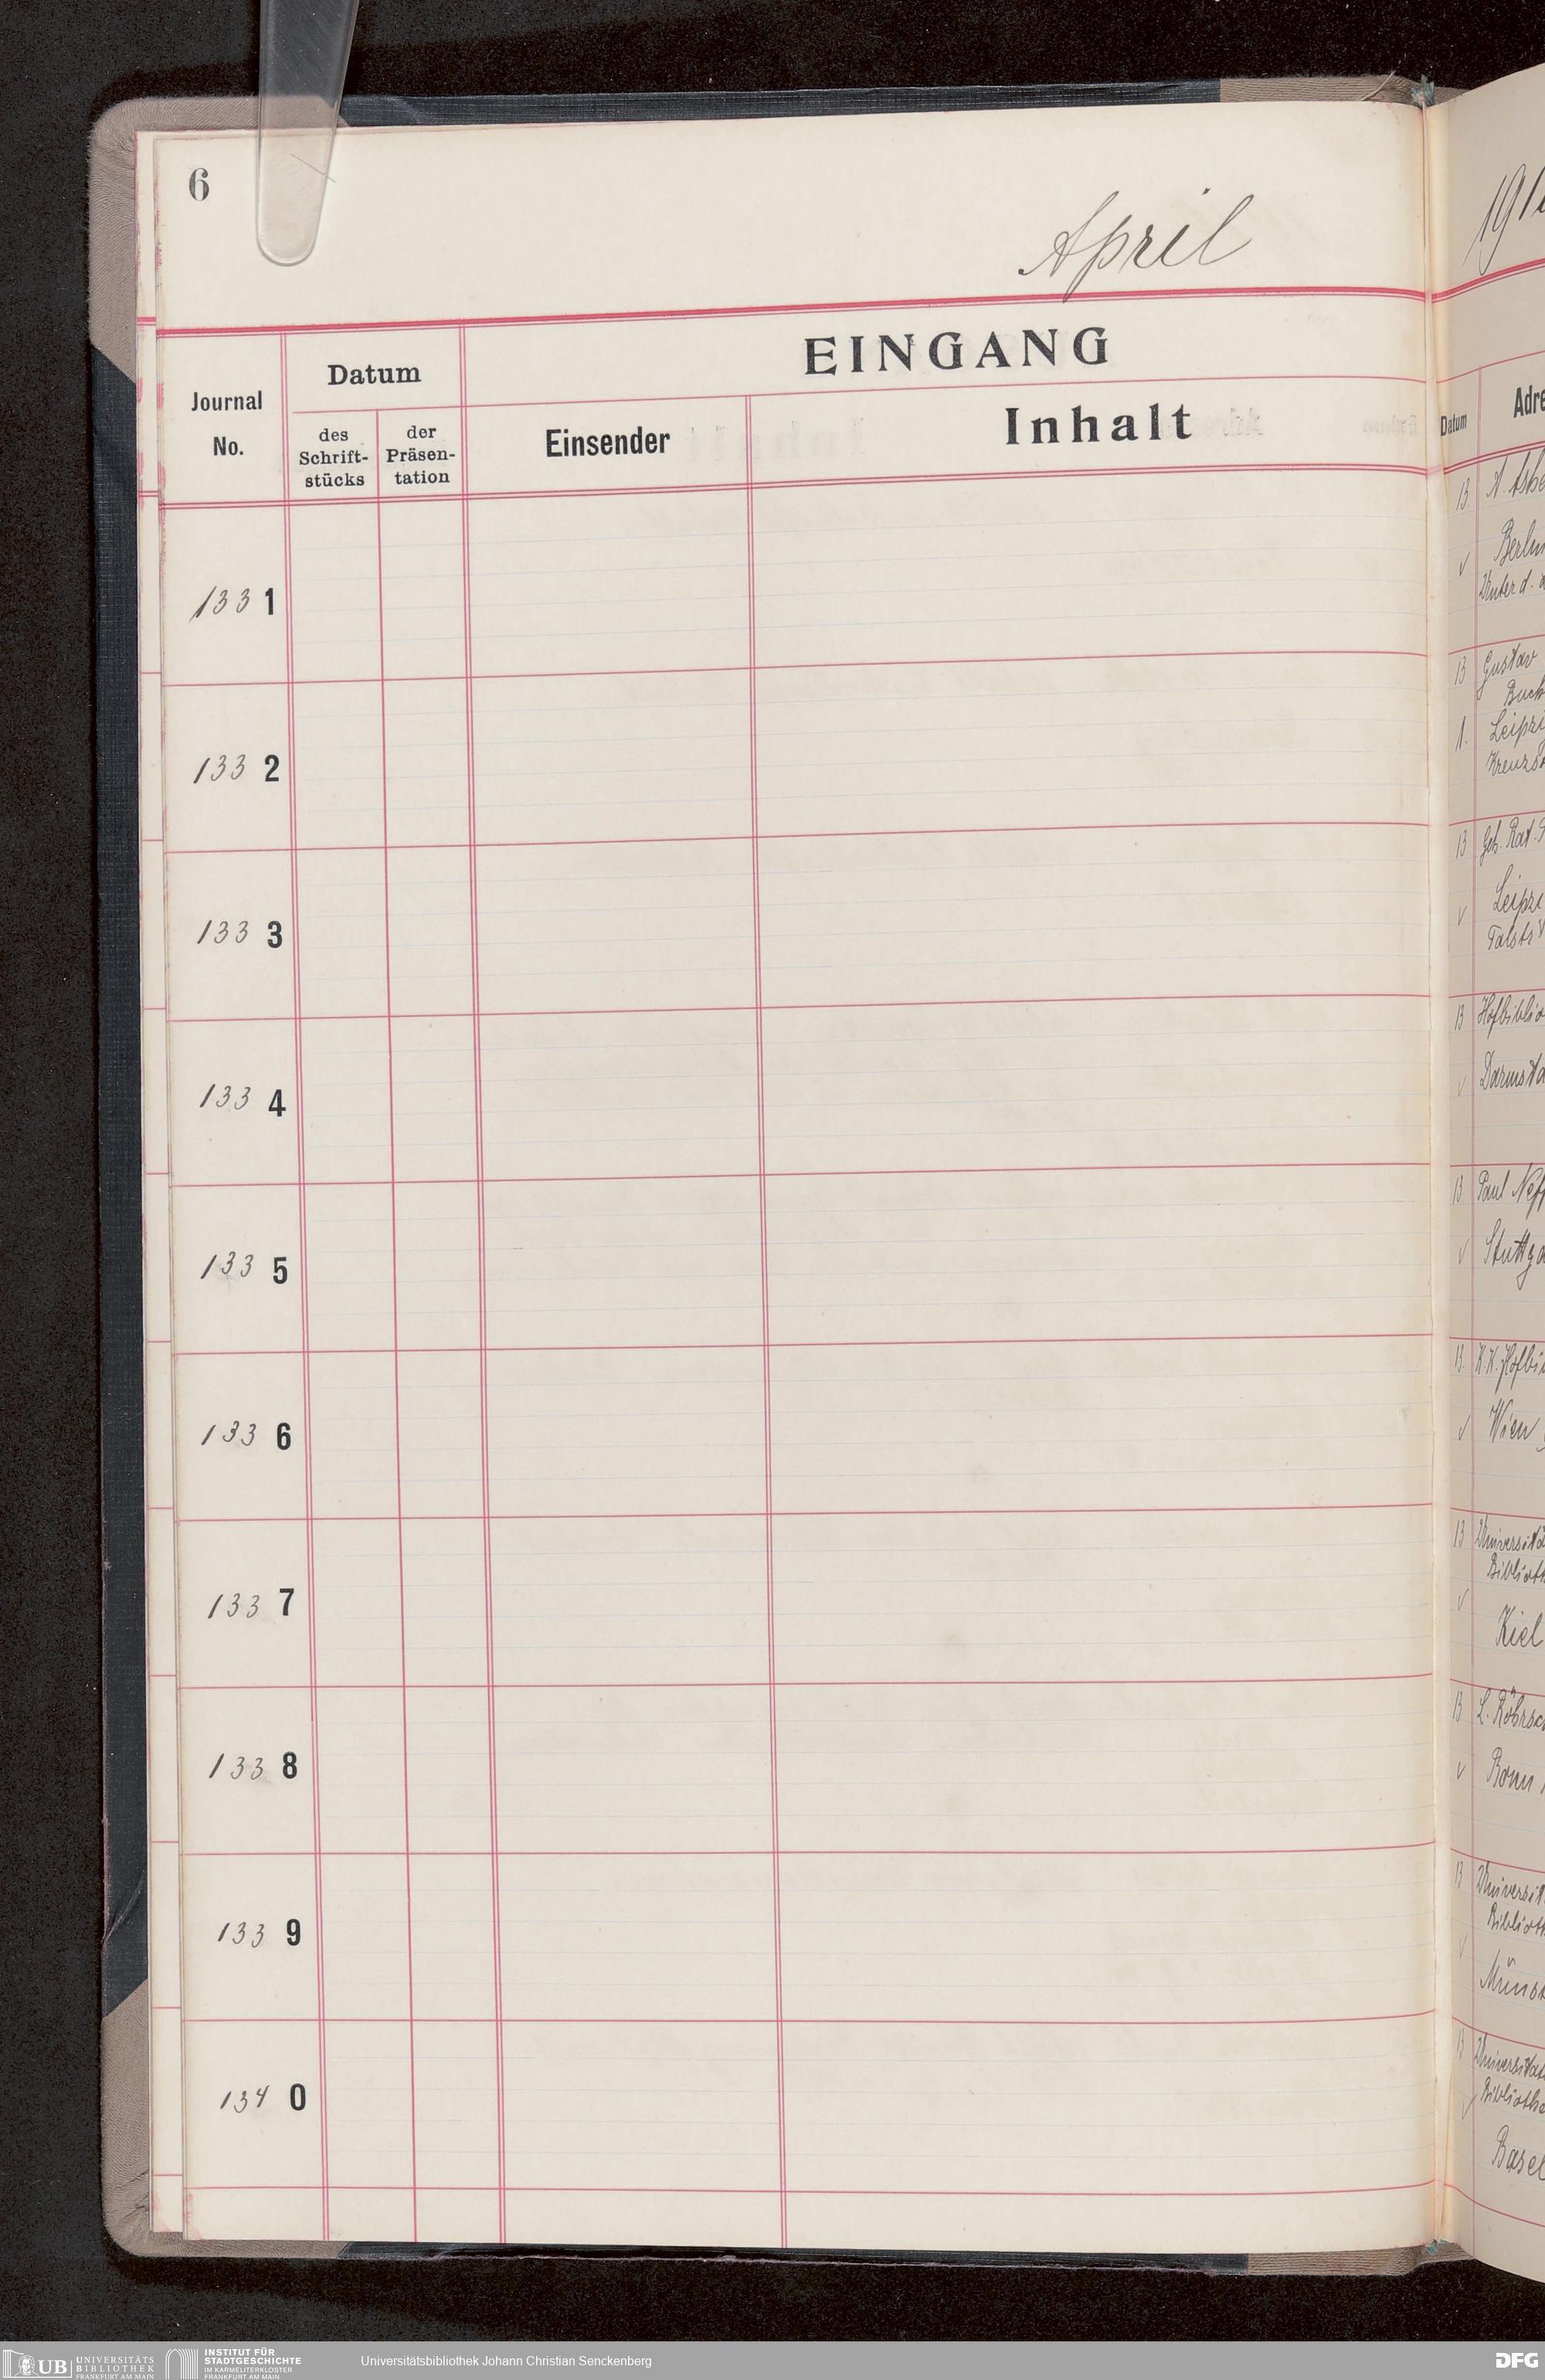 6
April
EINGANG
Journal
No.
Datum
des
Schrift-
stücks
der
Präsen-
tation
Einsender
Inhalt
1331
1332
1333
1334
1335
1336
1337
1338
1339
1340
191
Datum
Adre
13.
Berlin
Unter d.
13
Gustav
Buch
1.
Leipzi
13
Geh. Rat.
Leipzi
Talstr
13
Hofbiblio
Darmsta
13
Paul Neff
Stuttga
13.
K.K. Hofbi
Wien
13
Universitä
Biblioth
Kiel
13
L. Röhrsc
Bonn
13
Universit
Biblioth
Münst
13
Universitat
Bibliothe
Basel
UB UNIVERSITÄTS
BIBLIOTHEK
FRANKFURT AM MAIN
INSTITUT FÜR
STADTGESCHICHTE
IM KARMELITERKLOSTER
FRANKFURT AM MAIN
Universitätsbibliothek Johann Christian Senckenberg
DFG